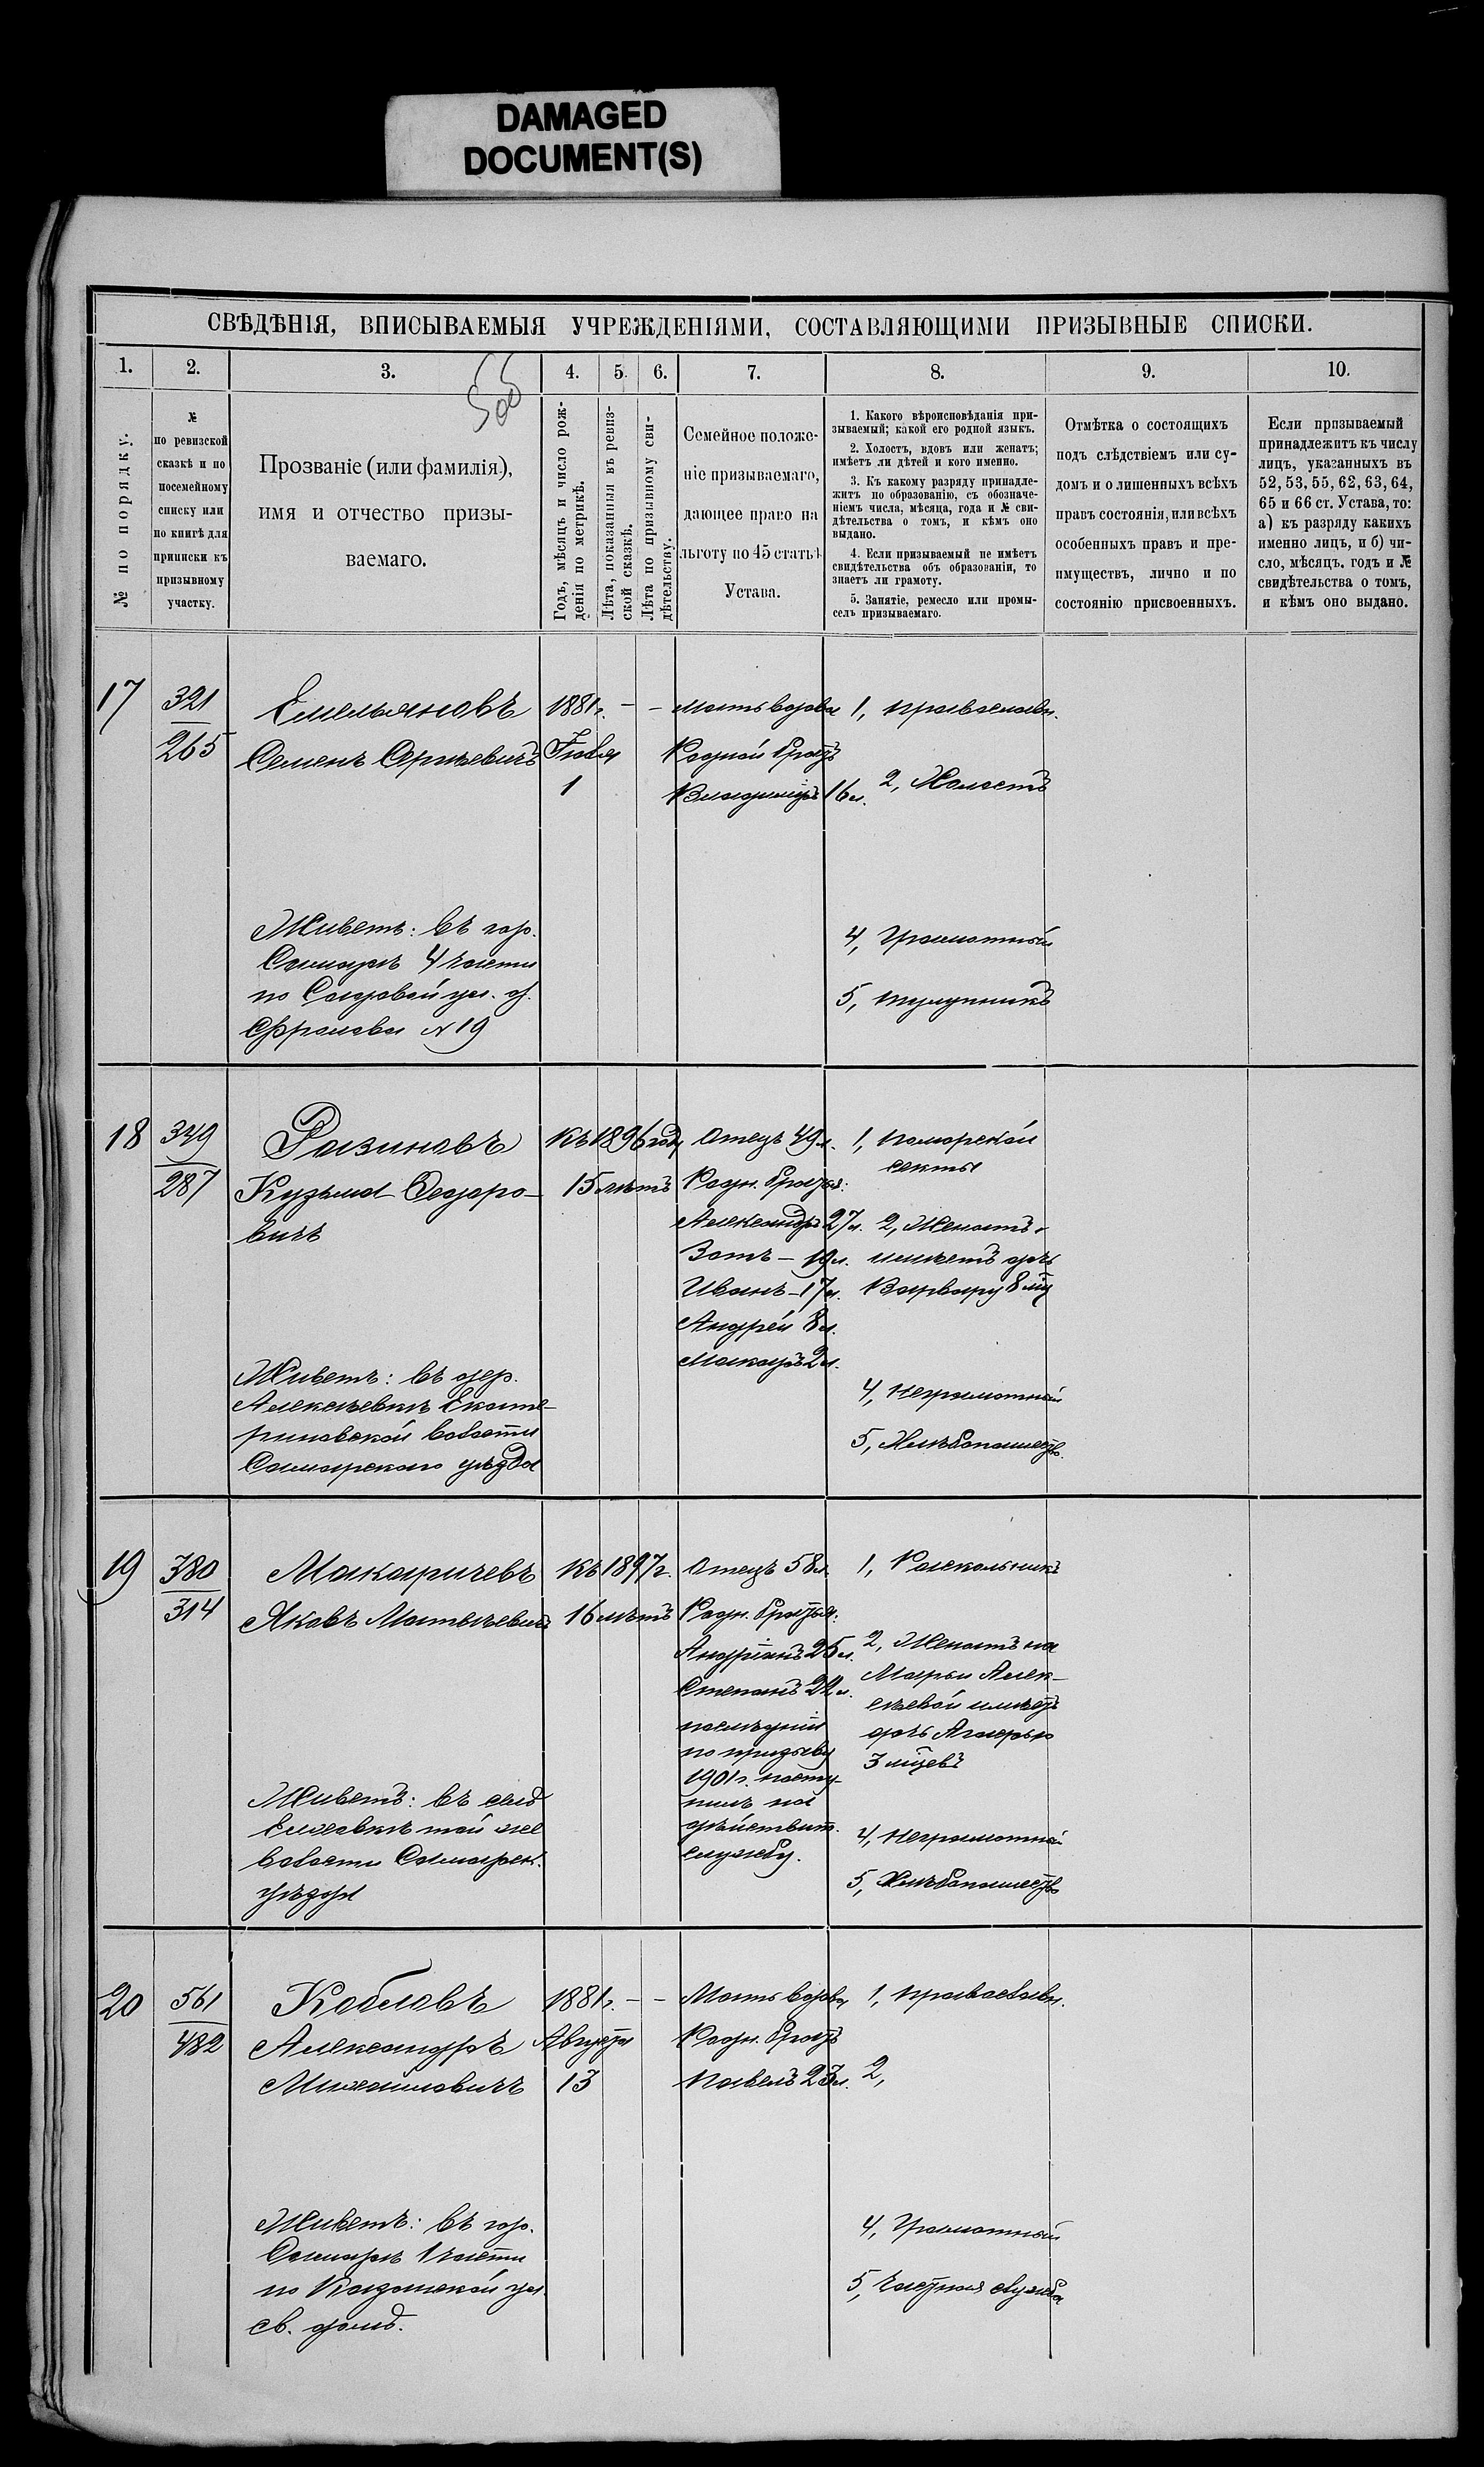 DAMAGED
DOCUMENT(S)
СВѢДѢНІЯ, ВПИСЫВАЕМЫЯ УЧРЕЖДЕНІЯМИ, СОСТАВЛЯЮЩИМИ ПРИЗЫВНЫЕ СПИСКИ.
1. 2. 3. 4. 5. 6. 7. 8. 9. 10.
№ по порядку.
№
по ревизской
сказкѣ и по
посемейному
списку или
по книгѣ для
приписки къ
призывному
участку.
Прозваніе (или фамилія),
имя и отчество призы-
ваемаго.
Годъ, мѣсяцъ и число рож-
денія по метрикѣ.
Лѣта, показанныя въ ревиз-
ской сказкѣ.
Лѣта по призывному сви-
дѣтельству.
Семейное положе-
ніе призываемаго,
дающее право на
льготу по 45 статьѣ
Устава.
1. Какого вѣроисповѣданія при-
зываемый; какой его родной языкъ.
2. Холостъ, вдовъ или женатъ;
имѣетъ ли дѣтей и кого именно.
3. Къ какому разряду принадле-
житъ по образованію, съ обозначе-
ніемъ числа, мѣсяца, года и № сви-
дѣтельства о томъ, и кѣмъ оно
выдано.
4. Если призываемый не имѣетъ
свидѣтельства объ образованіи, то
знаетъ ли грамоту.
5. Занятіе, ремесло или промы-
селъ призываемаго.
Отмѣтка о состоящихъ
подъ слѣдствіемъ или су-
домъ и о лишенныхъ всѣхъ
правъ состоянія, или всѣхъ
особенныхъ правъ и пре-
имуществъ, лично и по
состоянію присвоенныхъ.
Если призываемый
принадлежитъ къ числу
лицъ, указанныхъ въ
52, 53, 55, 62, 63, 64,
65 и 66 ст. Устава, то:
а) къ разряду какихъ
именно лицъ, и б) чи-
сло, мѣсяцъ, годъ и №
свидѣтельства о томъ,
и кѣмъ оно выдано.
17
321
265
Емельяновъ
Семенъ Сергѣевичъ
1881 г. - -
Іюля
1
Мать вдова
Родной братъ
Владиміръ 16 л.
1, православн.
2, Холостъ
4, Грамотный
5,
Живетъ: въ гор.
Самарѣ 4 части
по Садовой ул. д.
Фролова № 19
18
349
287
Разиновъ
Кузьма Федоро-
вичъ
Къ 1896 году
15 лѣтъ
Отецъ 49 л.
Родн. братья:
Александръ 27 л.
Зотъ - 19 л.
Иванъ - 17 л.
Андрей 8 л.
Макаръ 2 л.
1, поморской
секты
2, Женатъ
имѣетъ дочь
Варвару 8 мц
4, неграмотный
5, Хлѣбопашест.
Живетъ: въ дер.
Алексѣевкѣ Екате-
риновской волости
Самарскаго уѣзда
19
380
314
Макаричевъ
Яковъ Матвѣевичъ
Къ 1897 г.
16 лѣтъ
Отецъ 58 л.
Родн. братья:
Андріанъ 25 л.
Степанъ 22 л.
послѣдній
по призыву
1901 г. посту-
пилъ на
дѣйствит.
службу.
1, Раскольникъ
2, Женатъ на
Марьи Алек-
сѣевой имѣетъ
дочь
3 мцевъ
4, неграмотный
5, Хлѣбопашество
Живетъ: въ селѣ
той же
волости Самарск.
уѣзда
20
561
482
Кобловъ
Александръ
Михаиловичъ
1881 г. - -
Августа
13
Мать вдова
Родн. братъ
Павелъ 23 л.
1, православн.
2,
4, Грамотный
5, частная служба
Живетъ: въ гор.
Самарѣ 1 части
по Казанской ул.
св. домѣ.